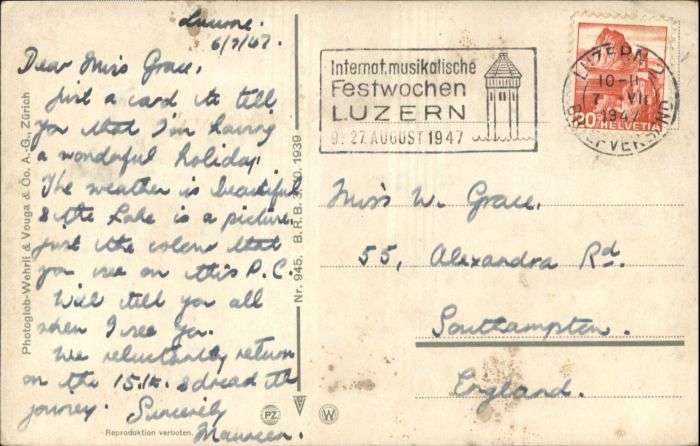 Lucerne.
6/7/47.
Dear Miss Grace,
Just a card to tell
you that I'm having
a wonderful holiday.
The weather is beautiful
& the Lake is a picture,
just the colour that
you see on this P.C.
Will tell you all
when I see you.
We reluctantly return
on the 15th. & dread the
journey. Sincerely
Maureen.
Photoglob-Wehrli & Vouga & Co. A.-G., Zürich
Reproduktion verboten.
Nr. 945. B.R.B. 3.10.1939
PZ
W
Internat. musikalische
Festwochen
LUZERN
9.-27. AUGUST 1947
LUZERN
10-11
7. VII
1947
BRIEFVERSAND
20 HELVETIA
Miss W. Grace,
55, Alexandra Rd.
Southampton.
England.